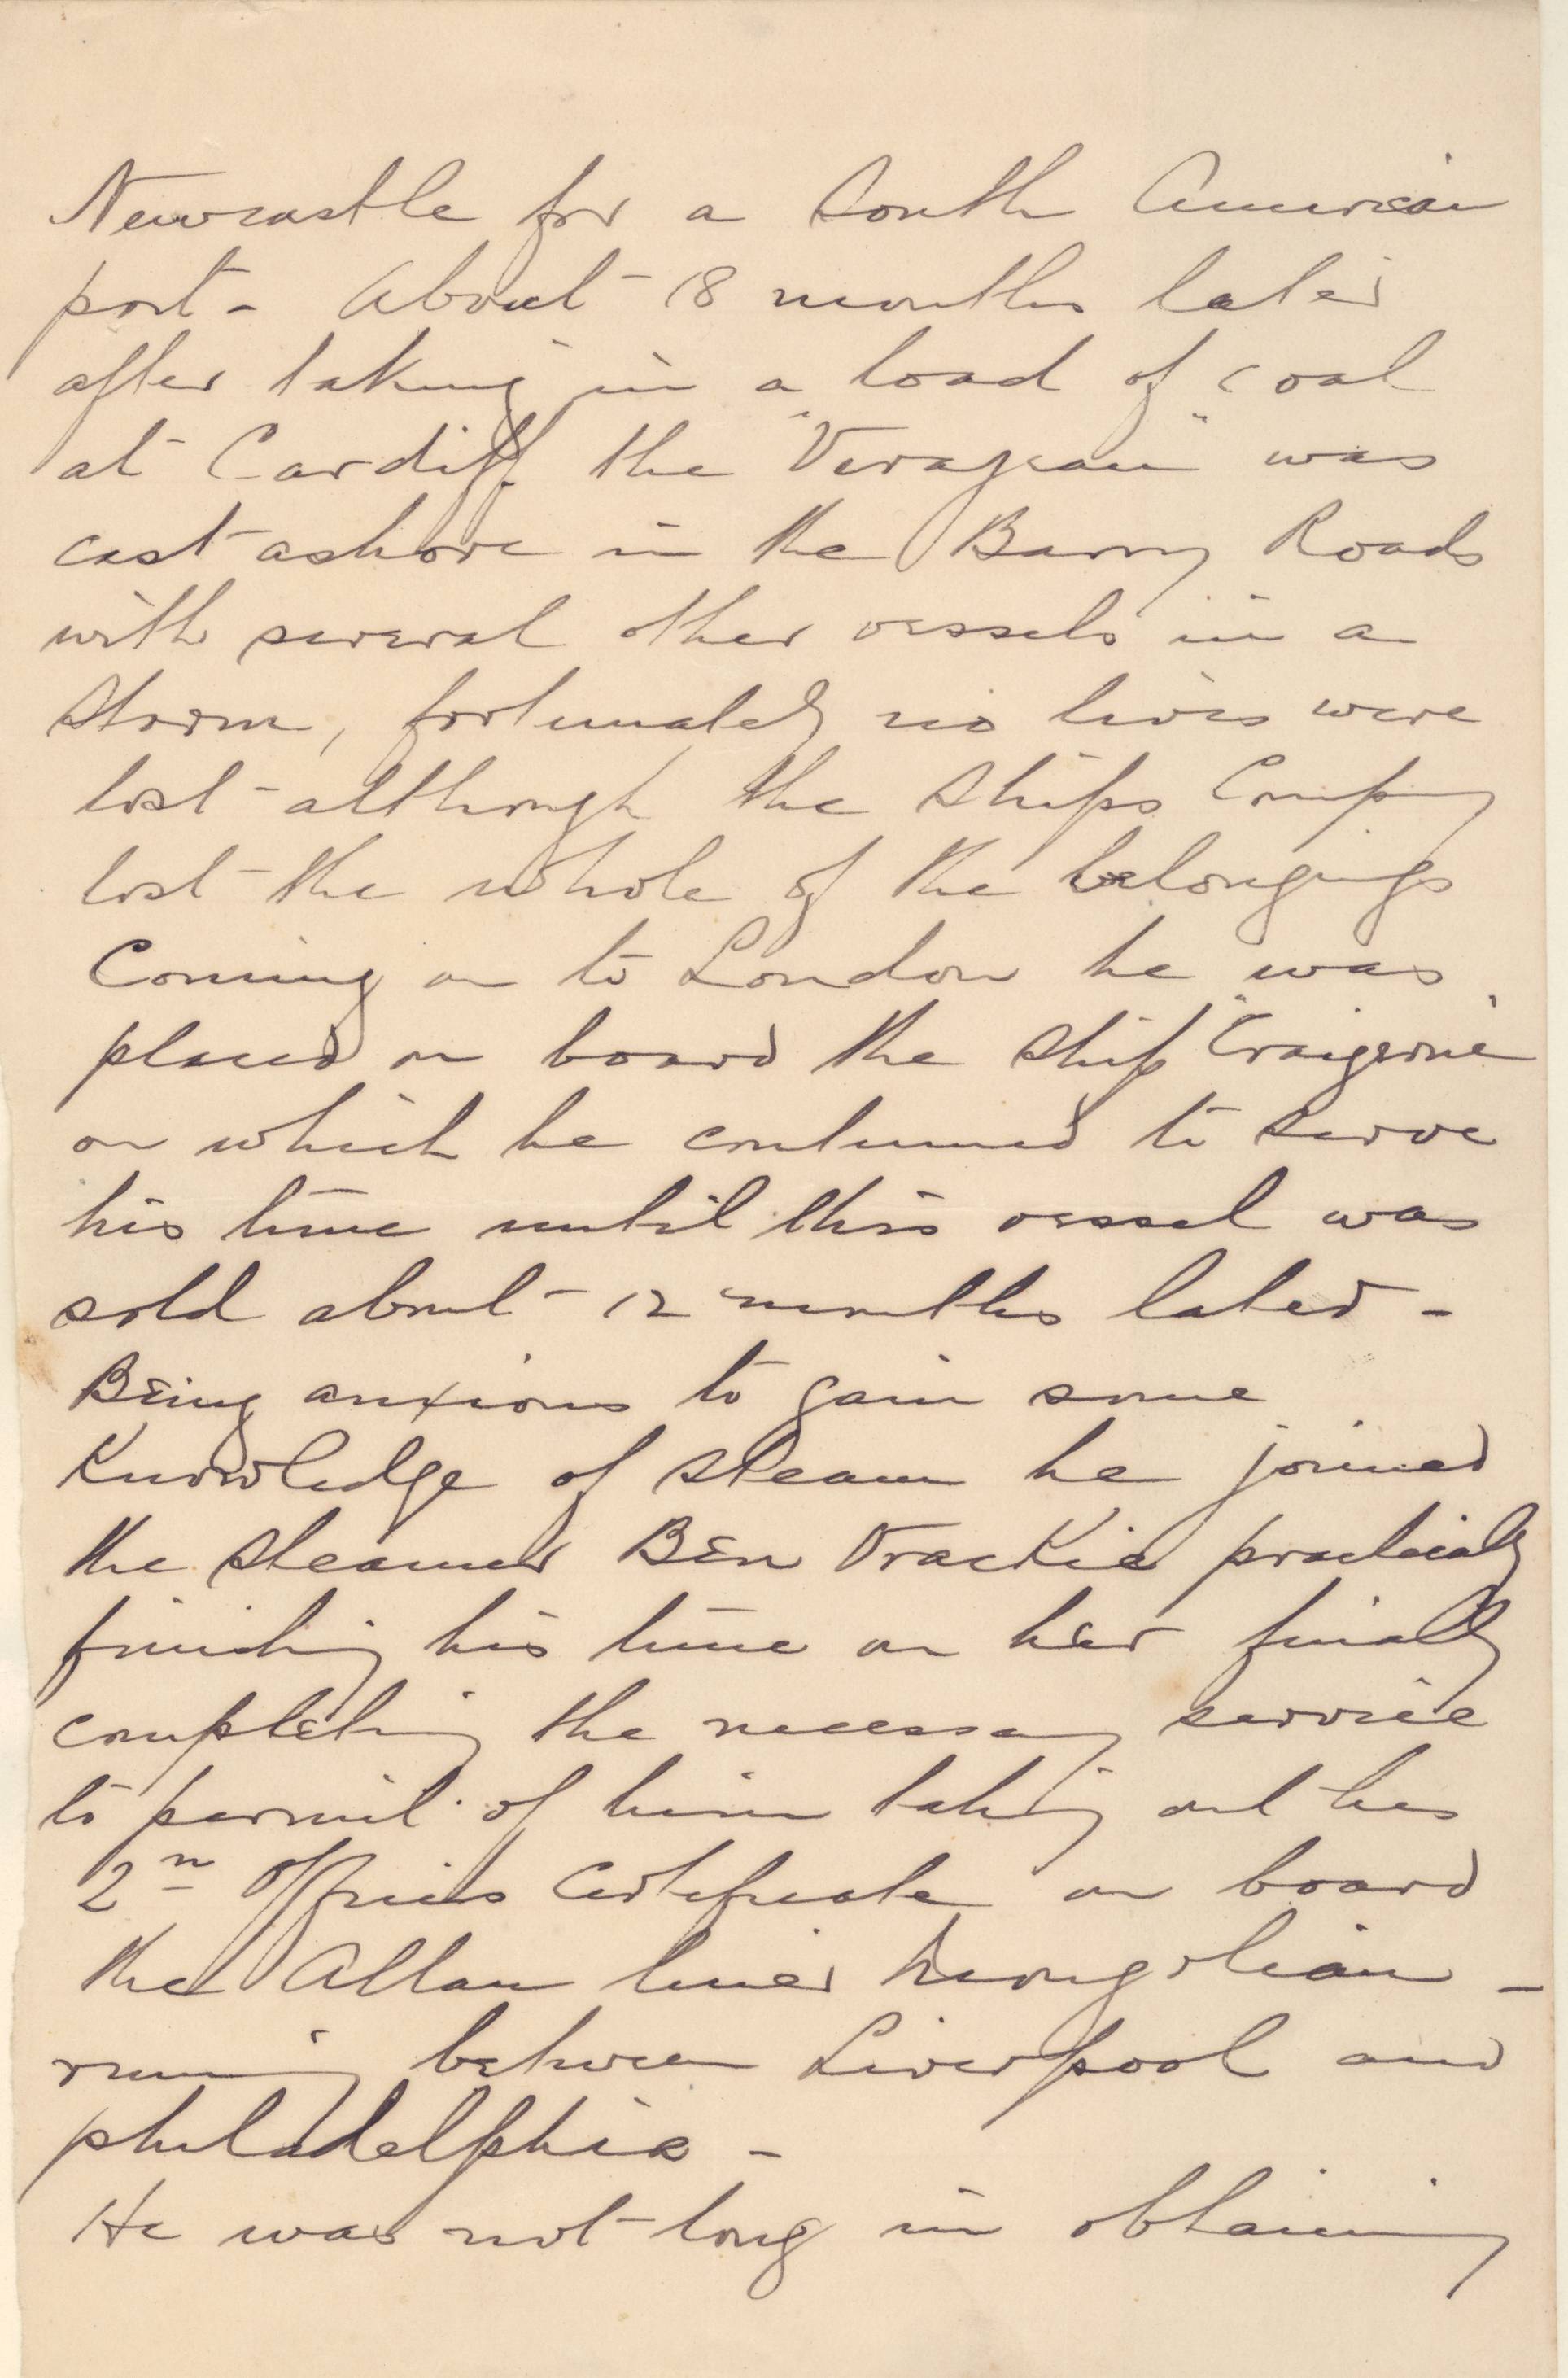 Newcastle for a South American
port - About 18 months later
after taking in a load of coal
at Cardiff the "Veragean" was
cast ashore in the Barry Roads
with several other vessels in a
Storm, fortunately no lives were
lost - although the Ships Company
lost the whole of the belongings
Coming on to London he was
placed on board the Ship "Craigerne"
on which he continued to serve
his time until this vessel was
sold about 12 months later -
Being anxious to gain some
Knowledge of steam he joined
the steamer Ben Vrackie practically
finishing his time on her finally
completing the necessary service
to permit of him taking out his
2n Officers Certificate on board
the Allan liner Mongolian -
running between Liverpool and
philadelphia -
He was not long in obtaining